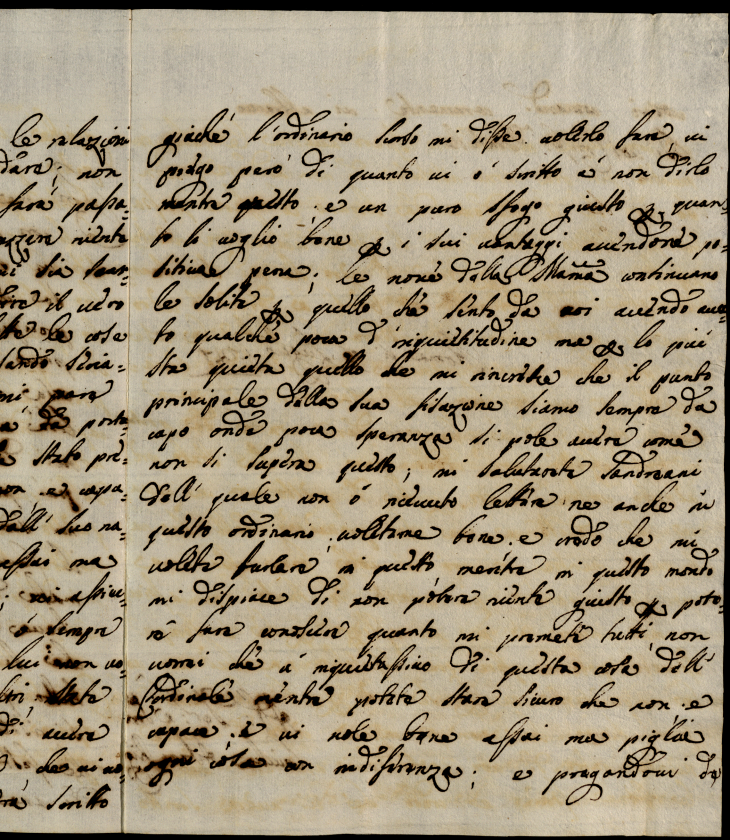 le relazioni
dare; non
sarà passa=
niente
sia
il vero
le cose
mi pare
da porta=
stato pre=
non e capa=
dall' suo na=
assai ma
; mi assicu=
é sempre
lui non vo=
state
di avere
che vi vo=
scritto
giachè l'ordinario scorso mi disse volerlo fare, vi
prego però di quanto vi ó scritto a non dirlo
mentre questo e un puro sfogo giusto p quan=
to li voglio bene p i sui vantaggi avendone po=
sitiva pena; le nove della Mama continuano
le solite p quello che sento da voi avendo avu=
to qualche poca d'inquietitudine ma p lo più
sta quieta quello che mi rincresce che il punto
principale della sua siamo sempre da
capo onde poca speranza si pole avere come
non si supera questo; mi salutarete Sandreani
dall' quale non ó ricevuto lettere ne anche in
questo ordinario, voleteme bene e credo che mi
volete burlare in questo mentre in questo mondo
mi dispiace di non potere niente giusto p pote=
re fare conoscere quanto mi premete tutti, non
vorrei che a inquietassivo di questa cosa dell'
Cordinale mentre potete stare sicuro che non e
capace e vi vole bene assai ma piglia
ogni cosa con indiferenza; e pregandovi da